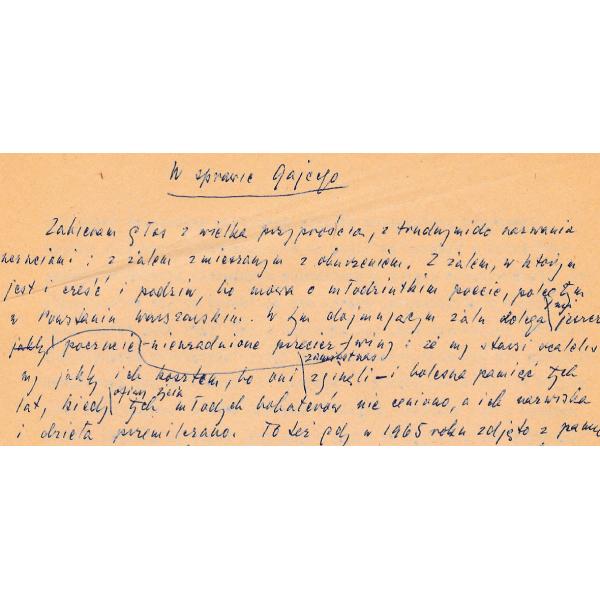 W sprawie Gajcego
Zabieram głos z wielką przykrością, z trudnymi do nazwania
uczuciami: z żalem zmieszanym z oburzeniem. Z żalem, w którym
jest i cześć i podziw, bo mowa o młodziutkim poecie, poległym
w Powstaniu Warszawskim. W tym dojmującym żalu
jakby poczucie nieuzasadnione przecież winy: że my starsi ocaleliśmy
my jakby ich kosztem, bo oni zginęli – i bolesna pamięć tych
lat, kiedy tych młodych bohaterów nie ceniono, a ich nazwiska
i dzieła przemilczano. To też gdy w 1965 roku zdjęto z